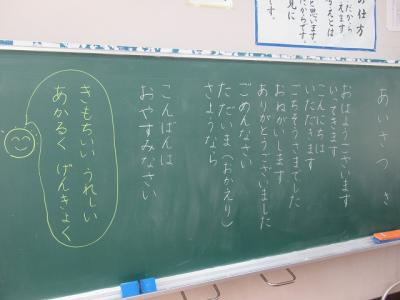 あいさつ き
おはようございます
いってきます
こんにちは
いただきます
ごちそうさまでした
おねがいします
ありがとうございました
ごめんなさい
ただいま（おかえり）
さようなら
こんばんは
おやすみなさい
きもちいい うれしい
あかるく げんきよく
の仕方